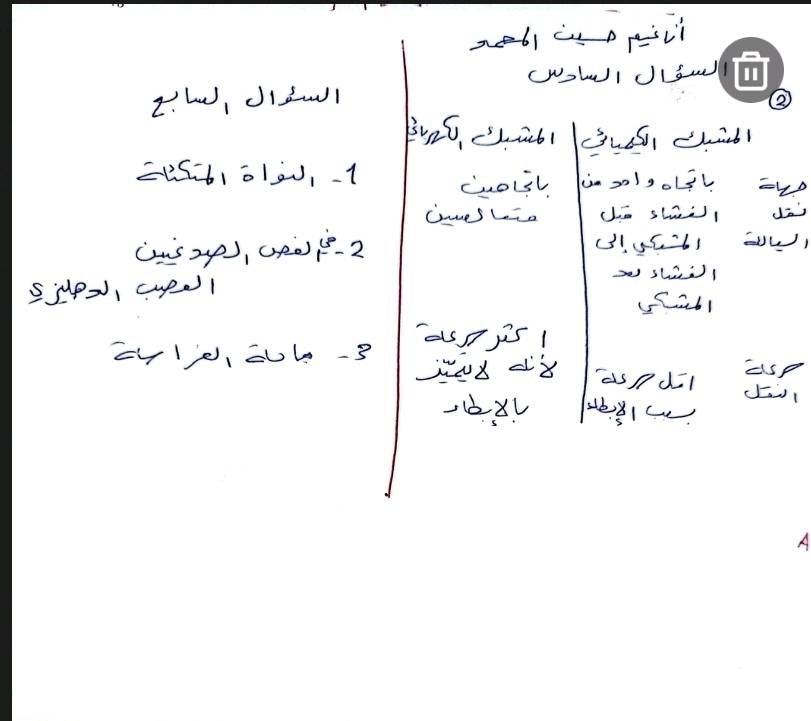 أناغيم حسين المحمد
السؤال السادس
②
المشبك الكيميائي المشبك الكهربائي
جهة نقل السيالة
باتجاه واحد من
الغشاء قبل
المشبكي إلى
الغشاء بعد
المشبكي
باتجاهين
متعاكسين
سرعة النقل
أقل سرعة
بسبب الإبطاء
أكثر سرعة
لأنه لا يتميز
بالإبطاء
السؤال السابع
1- النواة المتكئة
2- في الفص الصدغيين
العصب الدهليزي
3- حاسة الفراسة
A